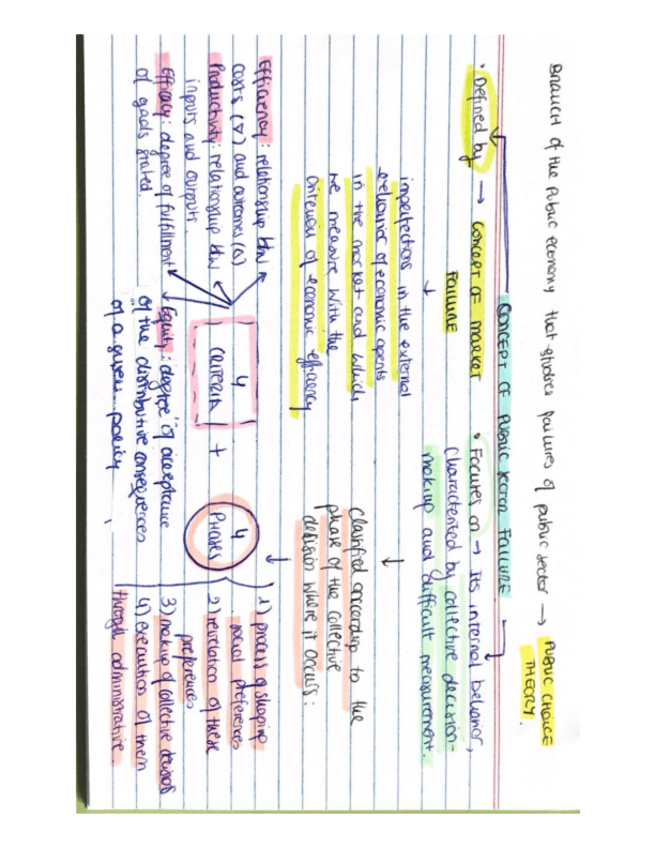 BRANCH OF THE PUBLIC ECONOMY that studies failures of public sector → PUBLIC CHOICE
THEORY.
CONCEPT OF PUBLIC SECTOR FAILURE
• Defined by → CONCEPT OF MARKET
FAILURE
↓
imperfections in the external
behavior of economic agents
in the market and which
we measure with the
criterion of economic efficiency
• Focuses on → Its internal behavior,
characterized by collective decision-
making and difficult measurement.
↓
Classified according to the
phase of the collective
decision where it occurs:
↓
4
CRITERIA
+
4
PHASES
Efficiency: relationship btw
costs (▽) and outcomes (△)
Productivity: relationship btw
inputs and outputs.
Efficacy: degree of fulfillment
of goals stated.
Equity: degree of acceptance
of the distributive consequences
of a given policy
1) process of shaping
social preferences
2) revelation of these
preferences
3) making of collective decisions
4) execution of them
through administrative.